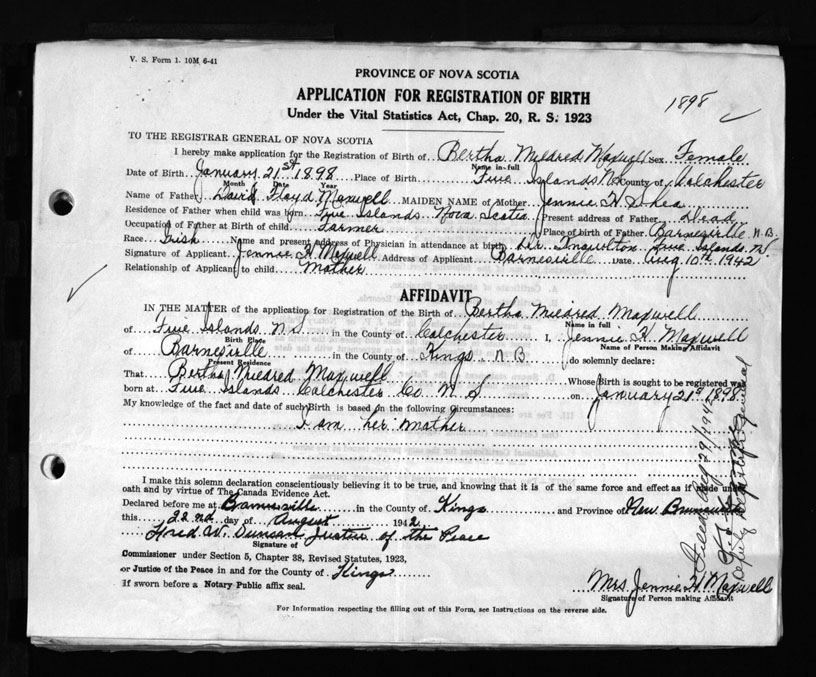 V. S. Form 1. 10M 6-41
PROVINCE OF NOVA SCOTIA
APPLICATION FOR REGISTRATION OF BIRTH
1898
Under the Vital Statistics Act, Chap. 20, R. S. 1923
TO THE REGISTRAR GENERAL OF NOVA SCOTIA
I hereby make application for the Registration of Birth of Bertha Mildred Maxwell Sex Female
Name in full
Date of Birth January 21st 1898 Place of Birth Five Islands N.S. County of Colchester
Month Date Year
Name of Father David Floyd Maxwell MAIDEN NAME of Mother Jennie H Shea
Residence of Father when child was born Five Islands Nova Scotia Present address of Father Dead
Occupation of Father at Birth of child Farmer Place of birth of Father Barnesville N.B.
Race Irish Name and present address of Physician in attendance at birth Five Islands N.S.
Signature of Applicant Jennie H Maxwell Address of Applicant Barnesville Date Aug 10th 1942
Relationship of Applicant to child Mother
AFFIDAVIT
IN THE MATTER of the application for Registration of the Birth of Bertha Mildred Maxwell
Name in full
of Five Islands N S in the County of Colchester I, Jennie H. Maxwell
Birth Place Name of Person Making Affidavit
of Barnesville in the County of Kings N B do solemnly declare:
Present Residence
That Bertha Mildred Maxwell Whose Birth is sought to be registered was
born at Five Islands Colchester Co N S on January 21st 1898
My knowledge of the fact and date of such Birth is based on the following circumstances:
I am her mother
I make this solemn declaration conscientiously believing it to be true, and knowing that it is of the same force and effect as if made under
oath and by virtue of The Canada Evidence Act.
Declared before me at Barnesville in the County of Kings and Province of New Brunswick
this 22nd day of August 1942
Fred W. Duncan Justice of the Peace
Signature of
Commissioner under Section 5, Chapter 38, Revised Statutes, 1923,
or Justice of the Peace in and for the County of Kings
If sworn before a Notary Public affix seal.
Mrs Jennie H Maxwell
Signature of Person making Affidavit
For Information respecting the filling out of this Form, see Instructions on the reverse side.
Filed Aug 29/1942
Deputy Registrar General